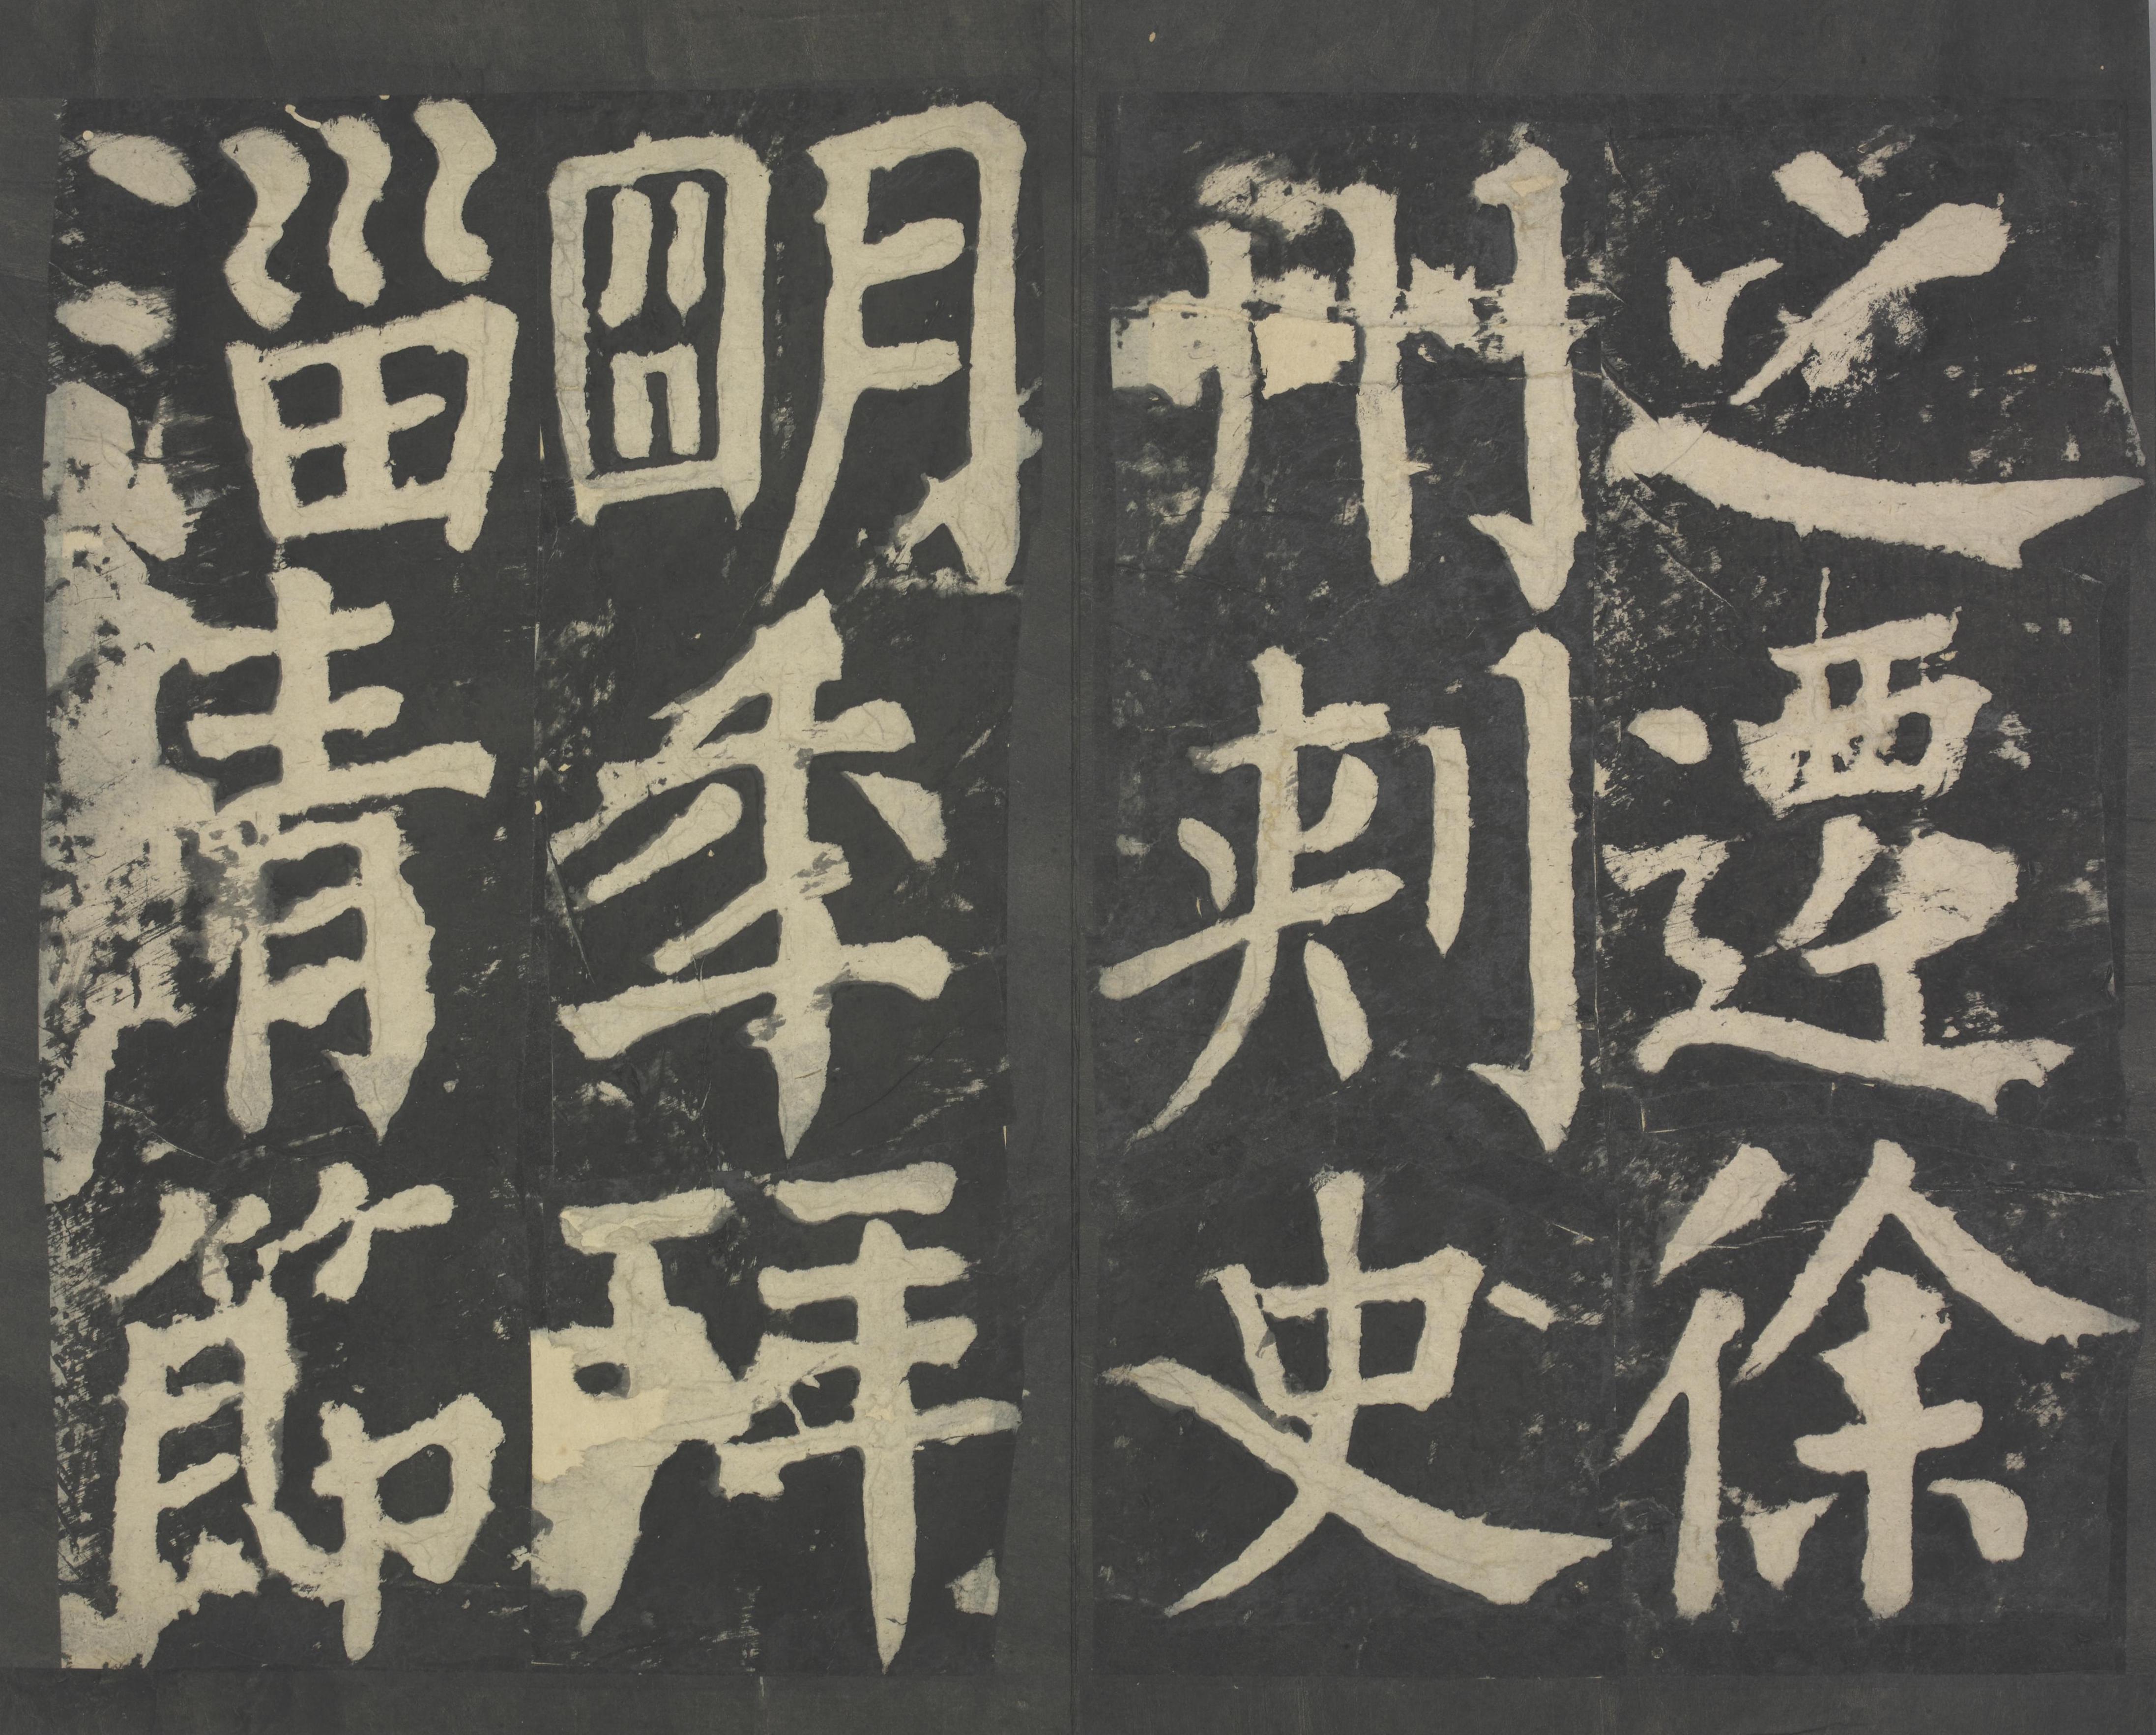 之遷徐
州刺史
朙秊拜
淄青節